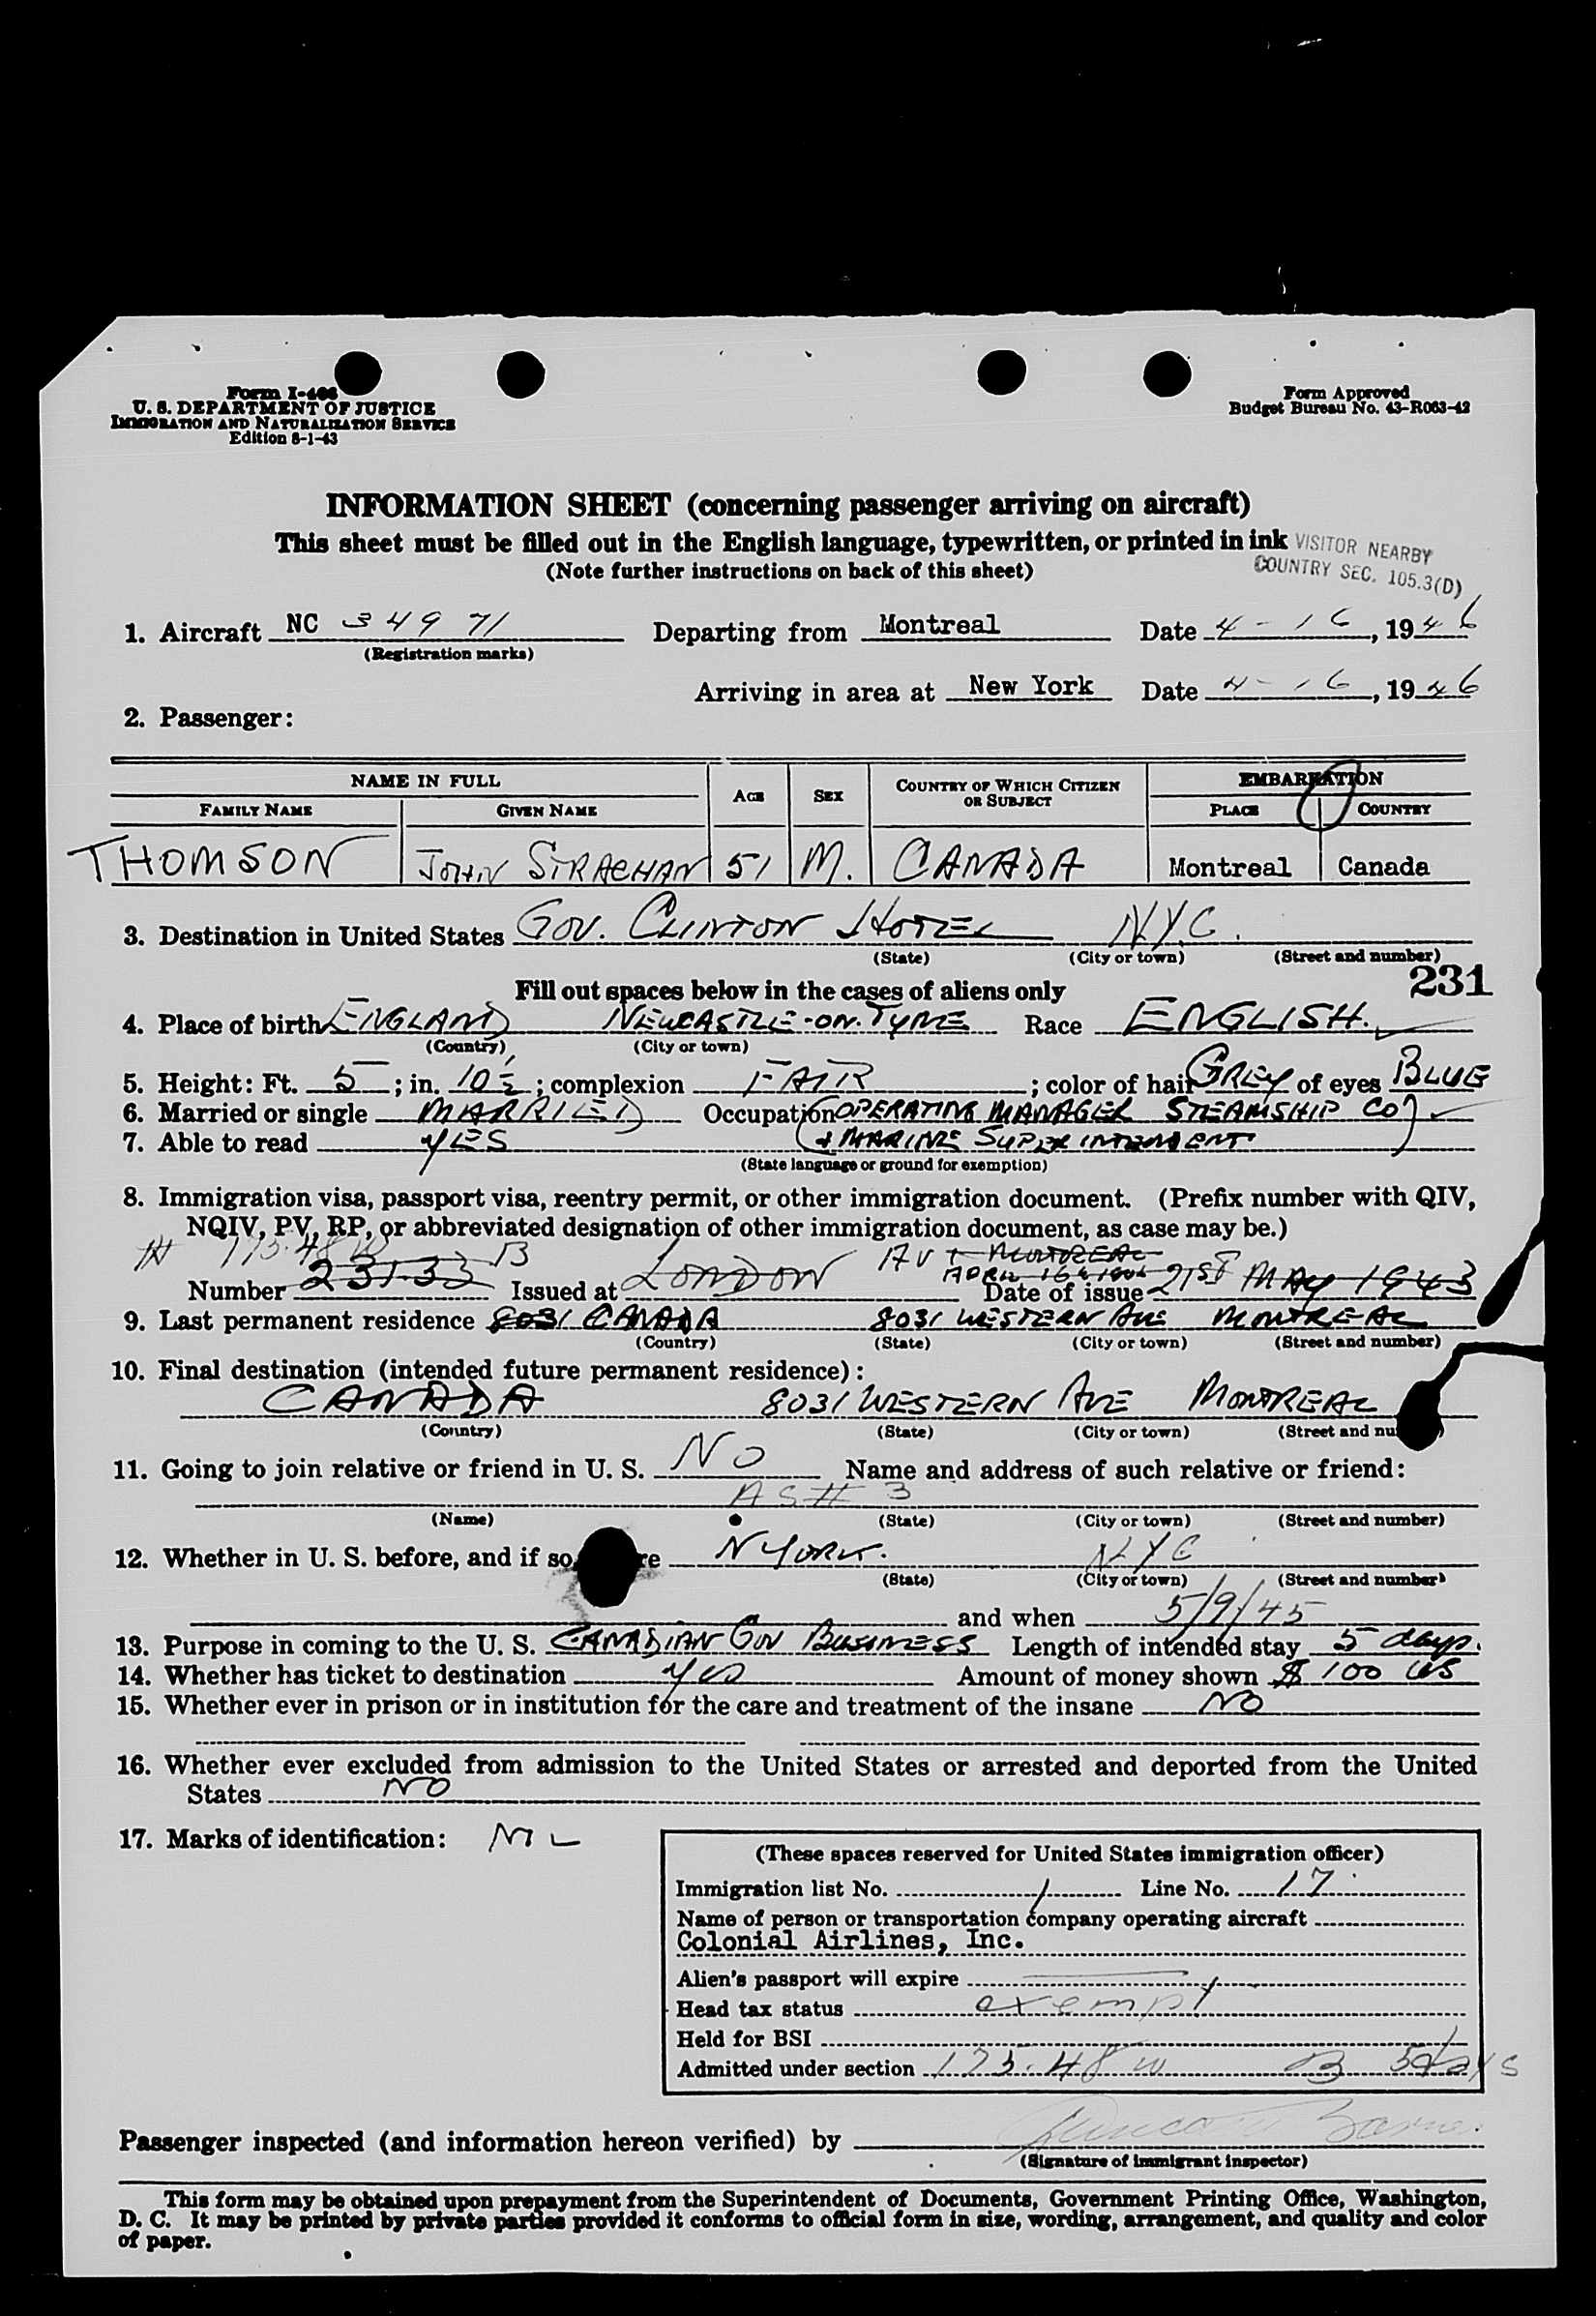 Form I-466
U. S. DEPARTMENT OF JUSTICE
IMMIGRATION AND NATURALIZATION SERVICE
Edition 8-1-43
Form Approved
Budget Bureau No. 43-R063-42
INFORMATION SHEET (concerning passenger arriving on aircraft)
This sheet must be filled out in the English language, typewritten, or printed in ink
VISITOR NEARBY
COUNTRY SEC. 105.3(D)
(Note further instructions on back of this sheet)
1. Aircraft NC 34971 Departing from Montreal Date 4-16, 1946
(Registration marks)
Arriving in area at New York Date 4-16, 1946
2. Passenger:
NAME IN FULL AGE SEX COUNTRY OF WHICH CITIZEN OR SUBJECT EMBARKATION
FAMILY NAME GIVEN NAME PLACE COUNTRY
THOMSON JOHN STRACHAN 51 M. CANADA Montreal Canada
3. Destination in United States GOV. CLINTON HOTEL NYC.
(State) (City or town) (Street and number)
231
Fill out spaces below in the cases of aliens only
4. Place of birth ENGLAND NEWCASTLE-ON-TYNE Race ENGLISH.
(Country) (City or town)
5. Height: Ft. 5; in. 10½; complexion FAIR; color of hair GREY of eyes BLUE
6. Married or single MARRIED Occupation OPERATING MANAGER STEAMSHIP CO
7. Able to read YES & MARINE SUPERINTENDENT
(State language or ground for exemption)
8. Immigration visa, passport visa, reentry permit, or other immigration document. (Prefix number with QIV,
NQIV, PV, RP, or abbreviated designation of other immigration document, as case may be.)
175.48 B MONTREAL
Number 23133 Issued at LONDON Date of issue 21st MAY 1943
9. Last permanent residence 8031 CANADA 8031 WESTERN AVE MONTREAL
(Country) (State) (City or town) (Street and number)
10. Final destination (intended future permanent residence):
CANADA 8031 WESTERN AVE MONTREAL
(Country) (State) (City or town) (Street and nu
11. Going to join relative or friend in U. S. NO Name and address of such relative or friend:
AS # 3
(Name) (State) (City or town) (Street and number)
12. Whether in U. S. before, and if so, re N YORK. NYC
(State) (City or town) (Street and number)
and when 5/9/45
13. Purpose in coming to the U. S. CANADIAN GOV BUSINESS Length of intended stay 5 days.
14. Whether has ticket to destination yes Amount of money shown $ 100 US
15. Whether ever in prison or in institution for the care and treatment of the insane NO
16. Whether ever excluded from admission to the United States or arrested and deported from the United
States NO
17. Marks of identification: NIL
(These spaces reserved for United States immigration officer)
Immigration list No. 1 Line No. 17
Name of person or transportation company operating aircraft
Colonial Airlines, Inc.
Alien's passport will expire
Head tax status exempt
Held for BSI
Admitted under section 175.48 w B 5 days
Passenger inspected (and information hereon verified) by
(Signature of immigrant inspector)
This form may be obtained upon prepayment from the Superintendent of Documents, Government Printing Office, Washington,
D. C. It may be printed by private parties provided it conforms to official form in size, wording, arrangement, and quality and color
of paper.